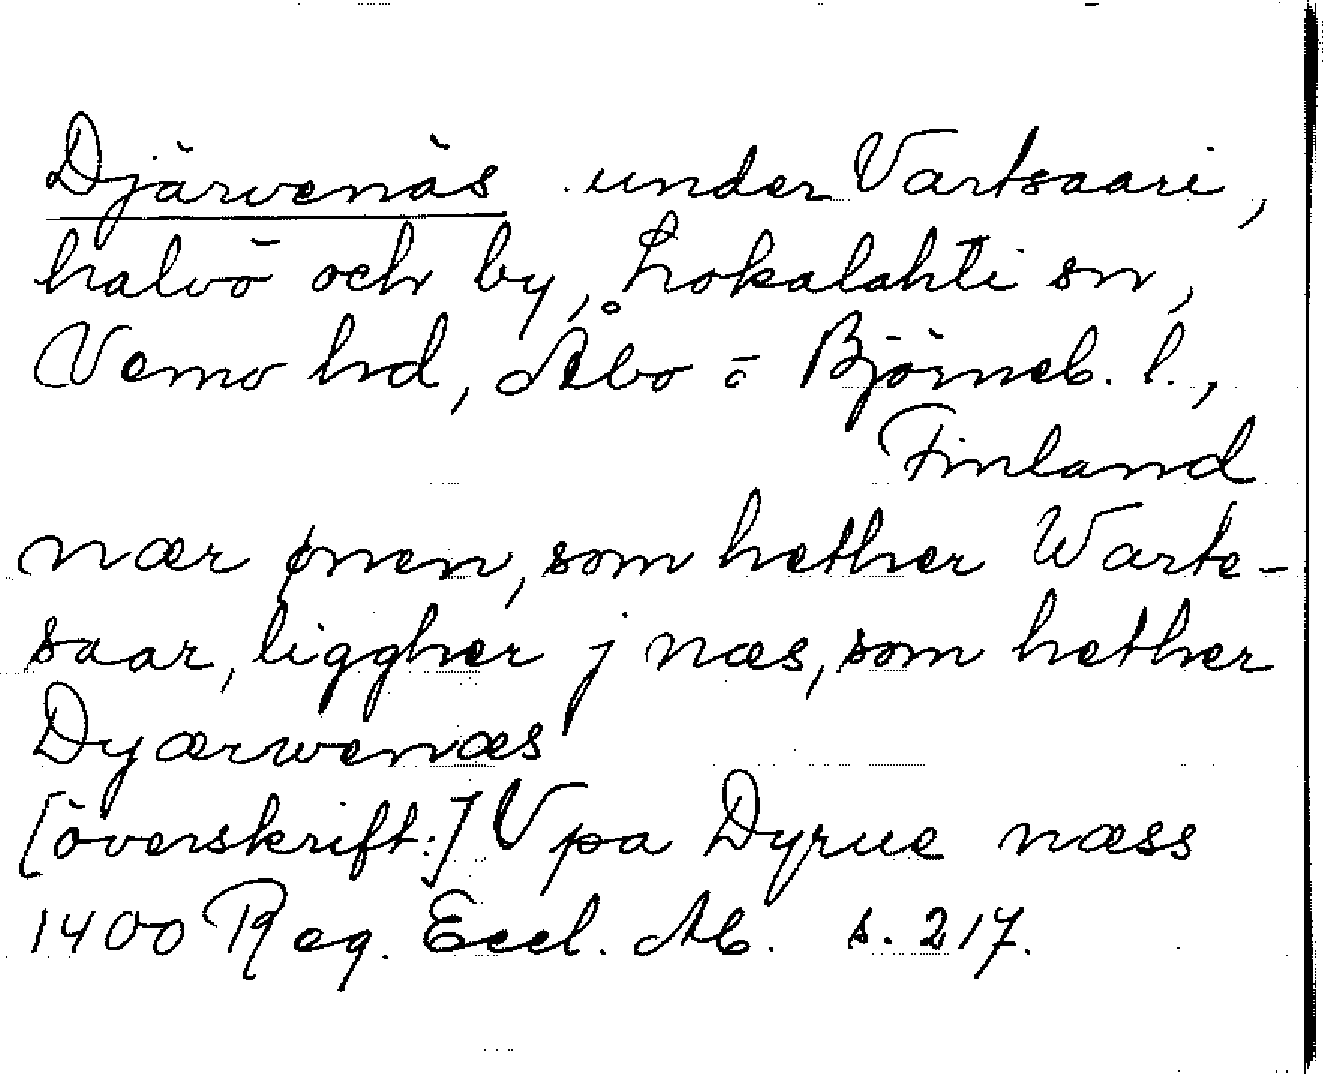 Djärvenäs under Vartsaari,
halvö och by, Lokalahti sn,
Vemo hd, Åbo o Björneb. l.,
Finland
nær ønen, som hether Warte-
saar, liggher j næs, som hether
Dyærwenæs
[överskrift:] Vpa Dyrue næss
1400 Reg. Eccl. Ab. s. 217.